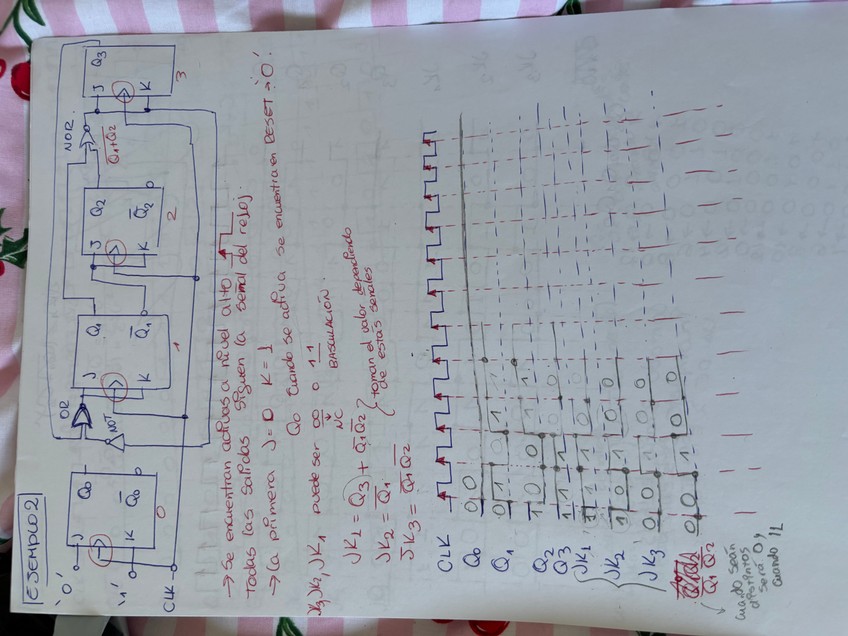 EJEMPLO 2
'0'
'1'
CLK
J
K
Q0
Q̅0̅
0
OR
NOT
J
K
Q1
Q̅1̅
1
J
K
Q2
Q̅2̅
2
NOR
Q1+Q2
J
K
Q3
3
→ Se encuentran activas a nivel alto.
Todas las salidas siguen la señal del reloj.
→ La primera J=0 K=1
Q0 cuando se activa se encuentra en RESET: '0'.
JK1 puede ser 00 o 11
NC
BASCULACIÓN.
JK1 = Q3 + Q1Q2
JK2 = Q̅1̅
JK3 = Q1Q2
toman el valor dependiendo
de estas señales
CLK
Q0 0 0
Q1 0 0 1 0 1
Q2 1 0 0 1
Q3 1 1 1 0
JK1 1 1 1 0 0
JK2 1 0 1 0 0
JK3 0 0 1 0 0
Q1 Q2 0 0 1 0
cuando sean
distintos
será 0 y
cuando 1